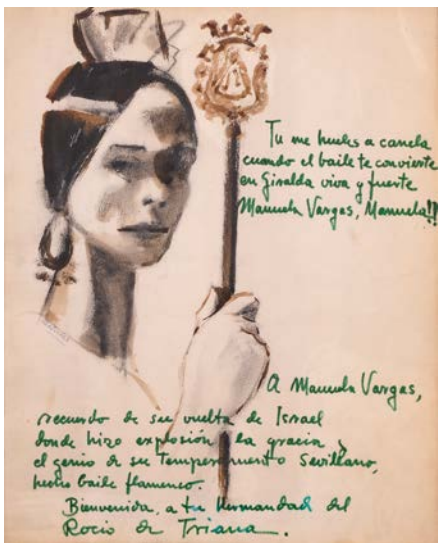 Tu me hueles a canela
cuando el baile te convierte
en Giralda viva y fuerte
Manuela Vargas, Manuela!!
A Manuela Vargas,
recuerdo de su vuelta de Israel
donde hizo explosión la gracia y
el genio de su temperamento Sevillano,
hecho baile flamenco.
Bienvenida, a tu hermandad del
Rocio de Triana.